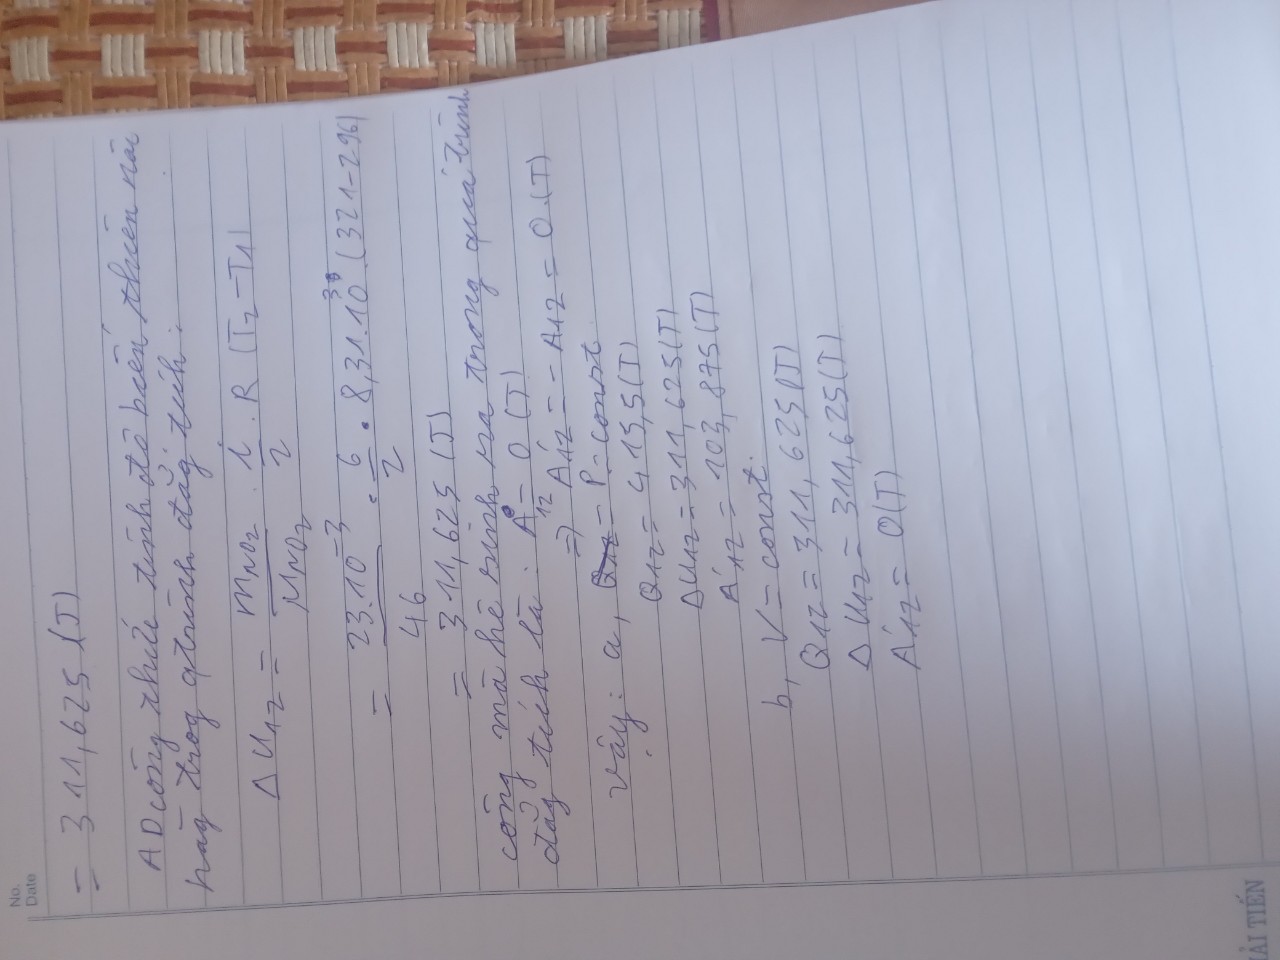 No.
Date
= 311,625 (J)
AD công thức tính độ biến thiên nội
năg trog qtrình đẳg tích:
ΔU12 = mNO2/MNO2 . i/2 . R (T2-T1)
= 23.10^-3/46 . 6/2 . 8,31.10^3 . (321-296)
= 311,625 (J)
công mà hệ sinh ra trong quá trình
đẳg tích là: A12 = 0 (J)
=> A'12 = -A12 = 0 (J)
Vậy: a, P = const
Q12 = 415,5 (J)
ΔU12 = 311,625 (J)
A'12 = 103,875 (J)
b, V = const
Q12 = 311,625 (J)
ΔU12 = 311,625 (J)
A'12 = 0 (J)
HẢI TIẾN